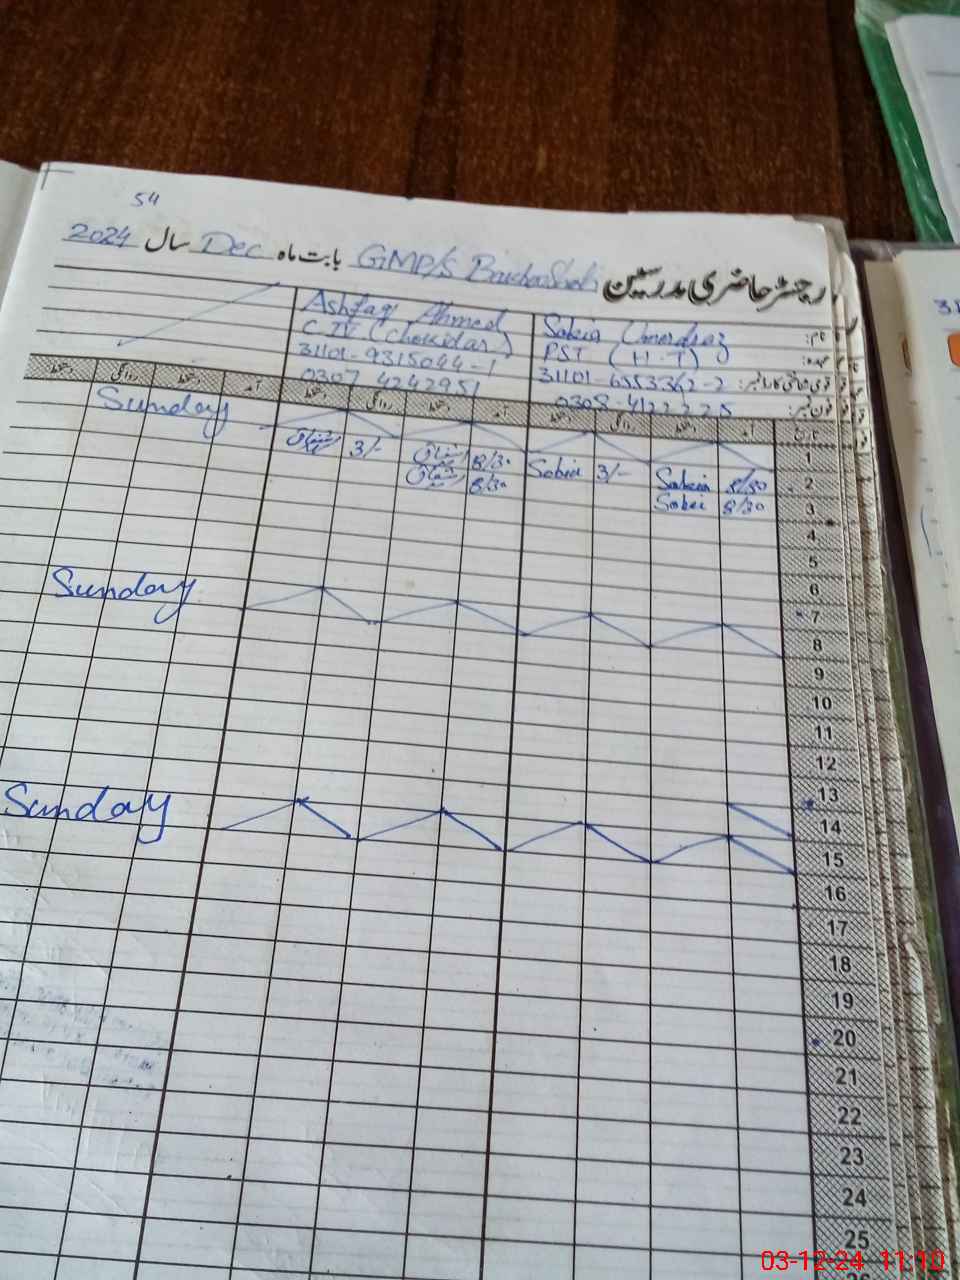 54
رجسٹر حاضری مدرسین GMP/S بابت ماہ Dec سال 2024
نام: Sobia Umerdraz
Ashfaq Ahmed
عہدہ: PST (H.T)
C.IV (Chokidar)
قومی شناختی کارڈ نمبر:
31101-9315044-1
فون نمبر: 0308-4122225
0307 4242951
تاریخ آمد دستخط روانگی دستخط آمد دستخط روانگی دستخط آمد دستخط روانگی دستخط
1 Sunday
2 8/30 Sobia 3/- Sobia 8/30 اشفاق 3/- اشفاق
3 8/30 Sobia 8/30 اشفاق
4
5
6
7
8 Sunday
9
10
11
12
13
14
15 Sunday
16
17
18
19
20
21
22
23
24
25
03-12-24 11:10